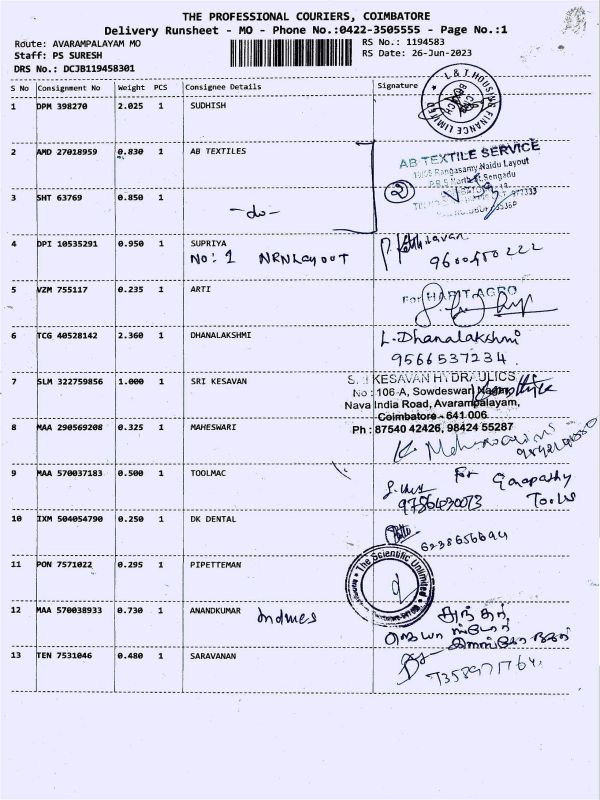 THE PROFESSIONAL COURIERS, COIMBATORE
Delivery Runsheet - MO - Phone No.:0422-3505555 - Page No.:1
Route: AVARAMPALAYAM MO
RS No.: 1194583
Staff: PS SURESH
RS Date: 26-Jun-2023
DRS No.: DCJB119458301
S No Consignment No Weight PCS Consignee Details Signature
L & T HOUSING FINANCE LIMITED
1 DPM 398270 2.025 1 SUDHISH
2 AMD 27018959 0.830 1 AB TEXTILES
AB TEXTILE SERVICE
Rangasamy Naidu Layout
3 SHT 63769 0.850 1
2
-do-
4 DPI 10535291 0.950 1 SUPRIYA
NO: 1 NRN Layout
9600450222
5 VZM 755117 0.235 1 ARTI
For HARIT AGRO
6 TCG 40528142 2.360 1 DHANALAKSHMI
L. Dhanalakshmi
9566537234
7 SLM 322759856 1.000 1 SRI KESAVAN
SRI KESAVAN HYDRAULICS
No : 106-A, Sowdeswari Nagar,
Nava India Road, Avarampalayam,
Coimbatore - 641 006
Ph : 87540 42426, 98424 55287
8 MAA 290569208 0.325 1 MAHESWARI
9 MAA 570037183 0.500 1 TOOLMAC
For Ganapathy
Tools
10 IXM 504054790 0.250 1 DK DENTAL
6238656694
11 PON 7571022 0.295 1 PIPETTEMAN
The Scientific Unlimited
12 MAA 570038933 0.730 1 ANANDKUMAR
13 TEN 7531046 0.480 1 SARAVANAN